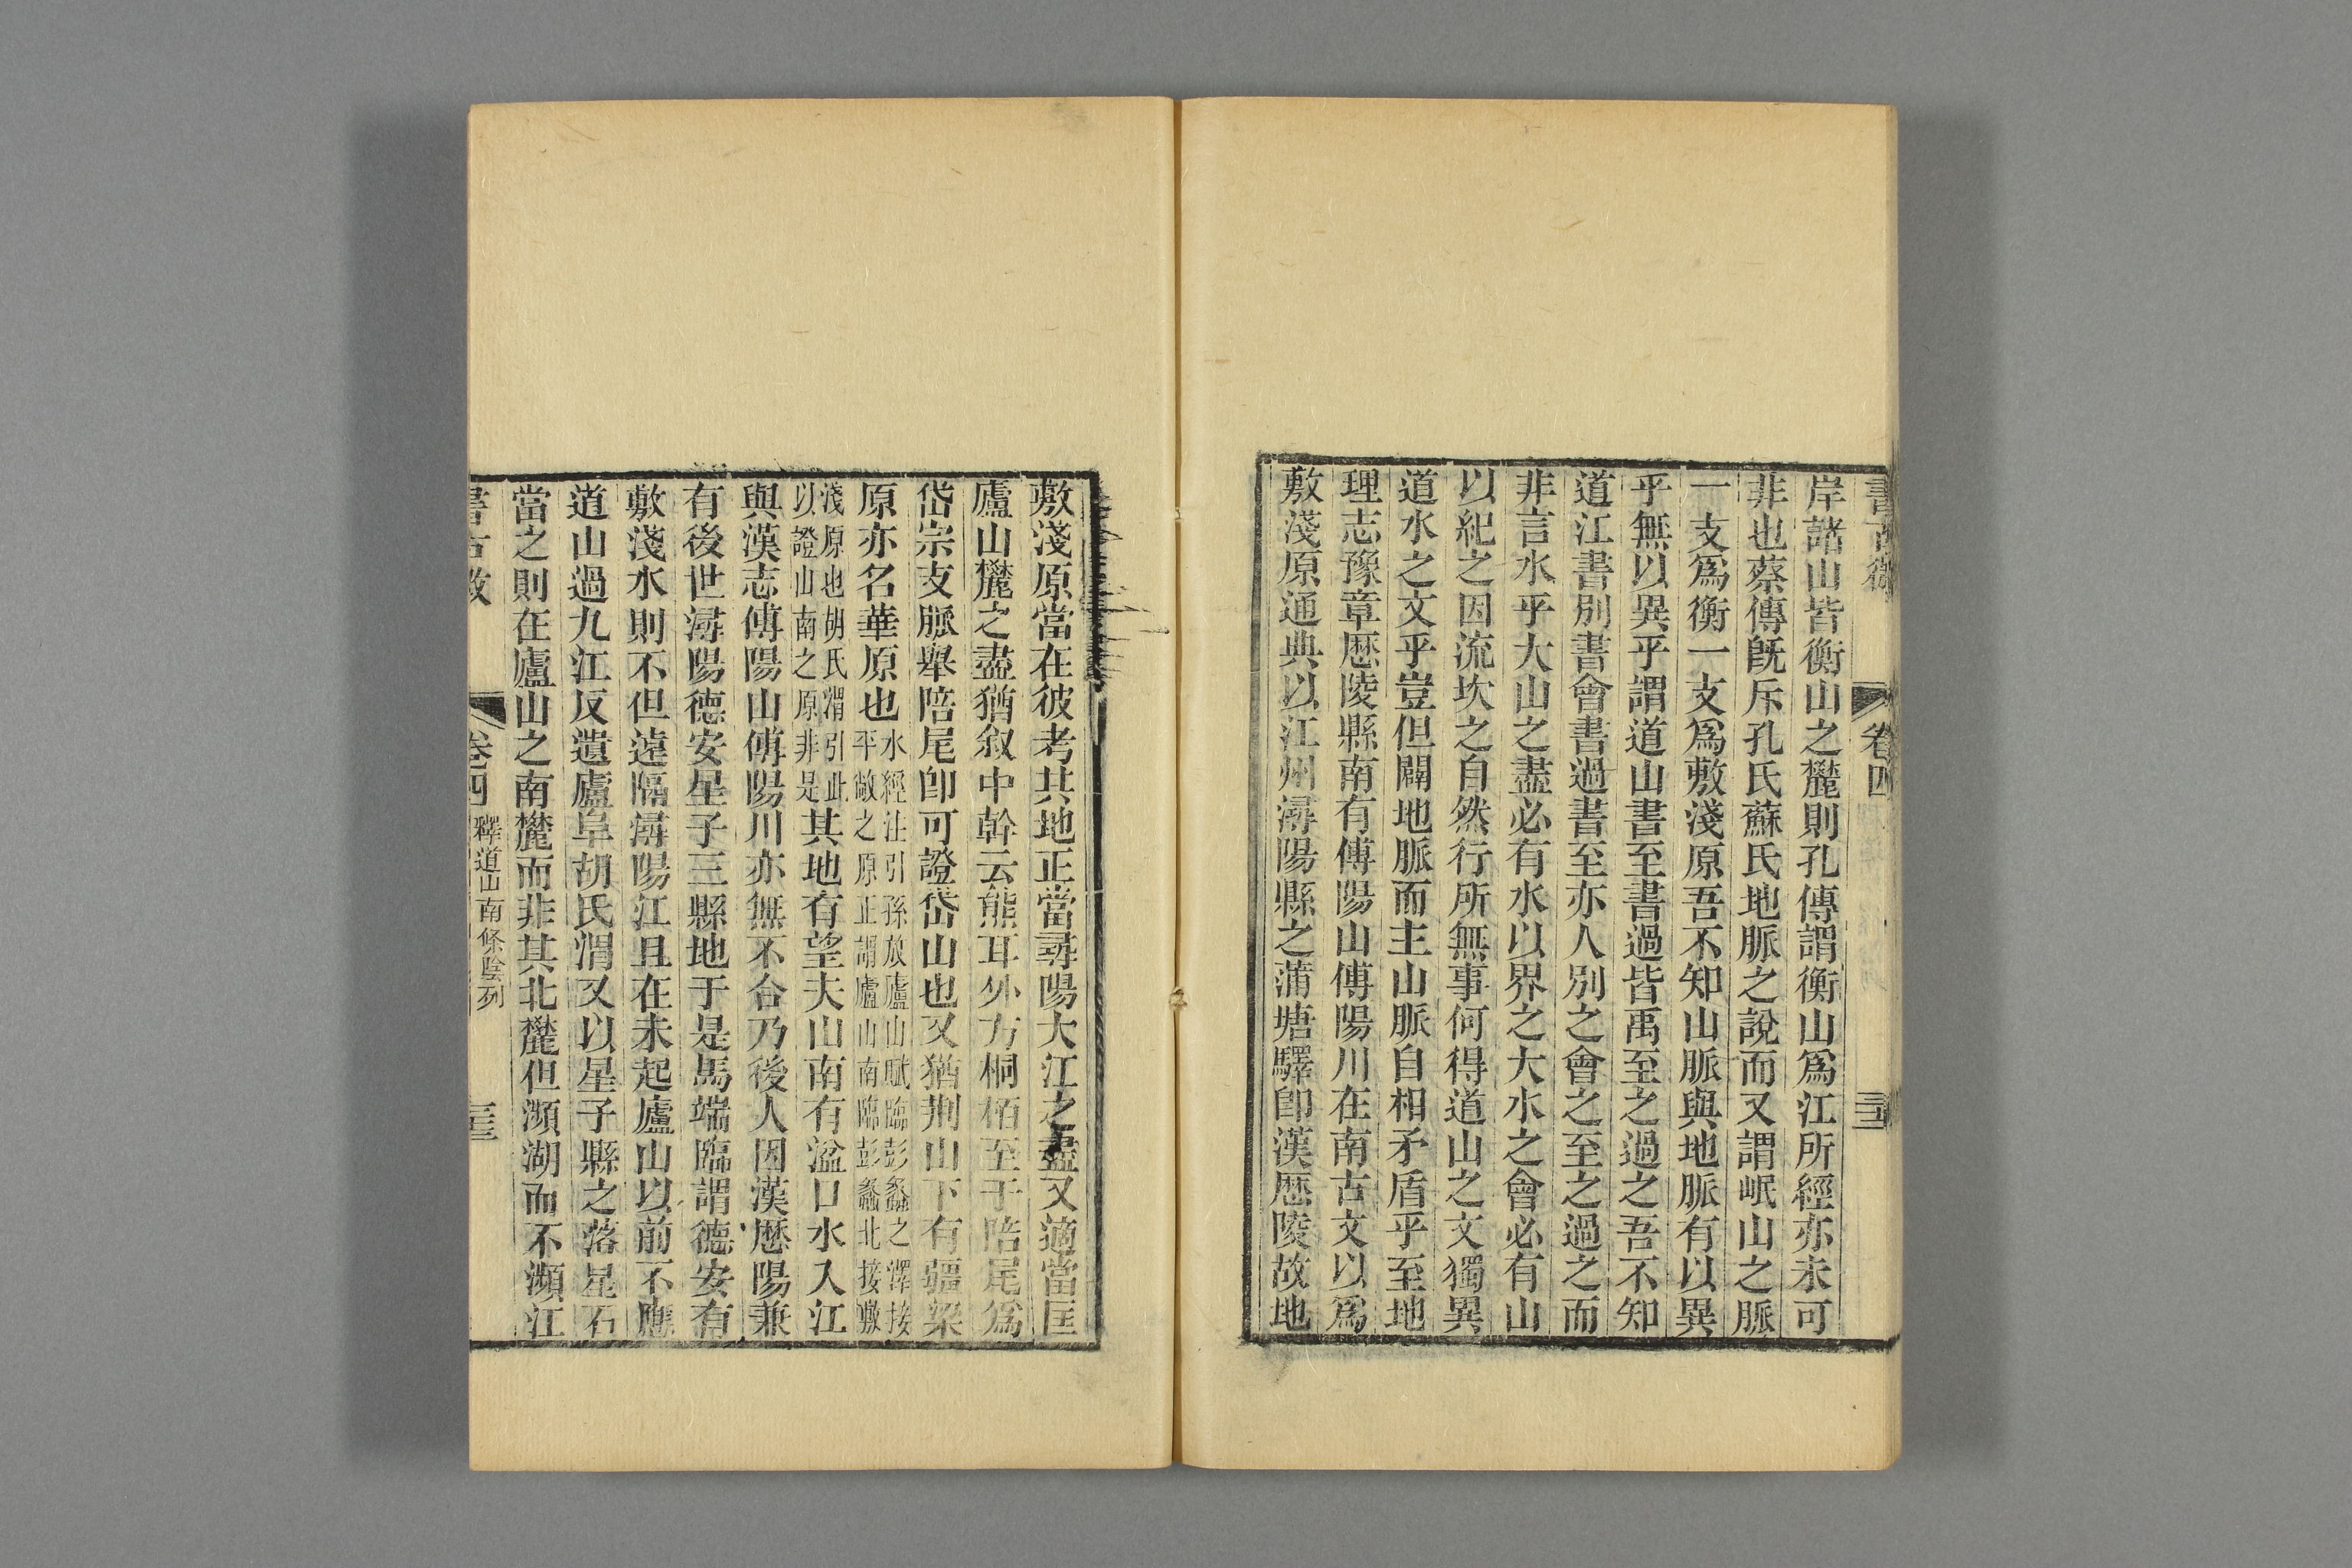 書古微 卷四
岸諸山皆衡山之麓則孔傳謂衡山爲江所經亦未可
非也蔡傳旣斥孔氏蘇氏地脈之說而又謂岷山之脈
一支爲衡一支爲敷淺原吾不知山脈與地脈有以異
乎無以異乎謂道山書至書過皆禹至之過之吾不知
道江書別書會書過書至亦人別之會之至之過之而
非言水乎大山之盡必有水以界之大水之會必有山
以紀之因流坎之自然行所無事何得道山之文獨異
道水之文乎豈但闢地脈而主山脈自相矛盾乎至地
理志豫章歷陵縣南有傅陽山傅陽川在南古文以爲
敷淺原通典以江州潯陽縣之蒲塘驛卽漢歷陵故地
敷淺原當在彼考其地正當尋陽大江之盡又適當匡
廬山麓之盡猶叙中幹云熊耳外方桐栢至于陪尾爲
岱宗支脈舉陪尾卽可證岱山也又猶荆山下有疆梁
原亦名華原也水經注引孫放廬山賦臨彭蠡之澤接
平敞之原正謂廬山南臨彭蠡北接敷
淺原也胡氏渭引此
以證山南之原非是其地有望夫山南有湓口水入江
與漢志傅陽山傅陽川亦無不合乃後人因漢歷陽兼
有後世潯陽德安星子三縣地于是馬端臨謂德安有
敷淺水則不但遠隔潯陽江且在未起廬山以前不應
道山過九江反遺廬阜胡氏渭又以星子縣之落星石
當之則在廬山之南麓而非其北麓但瀕湖而不瀕江
書古微 卷四 釋道山南條陰列